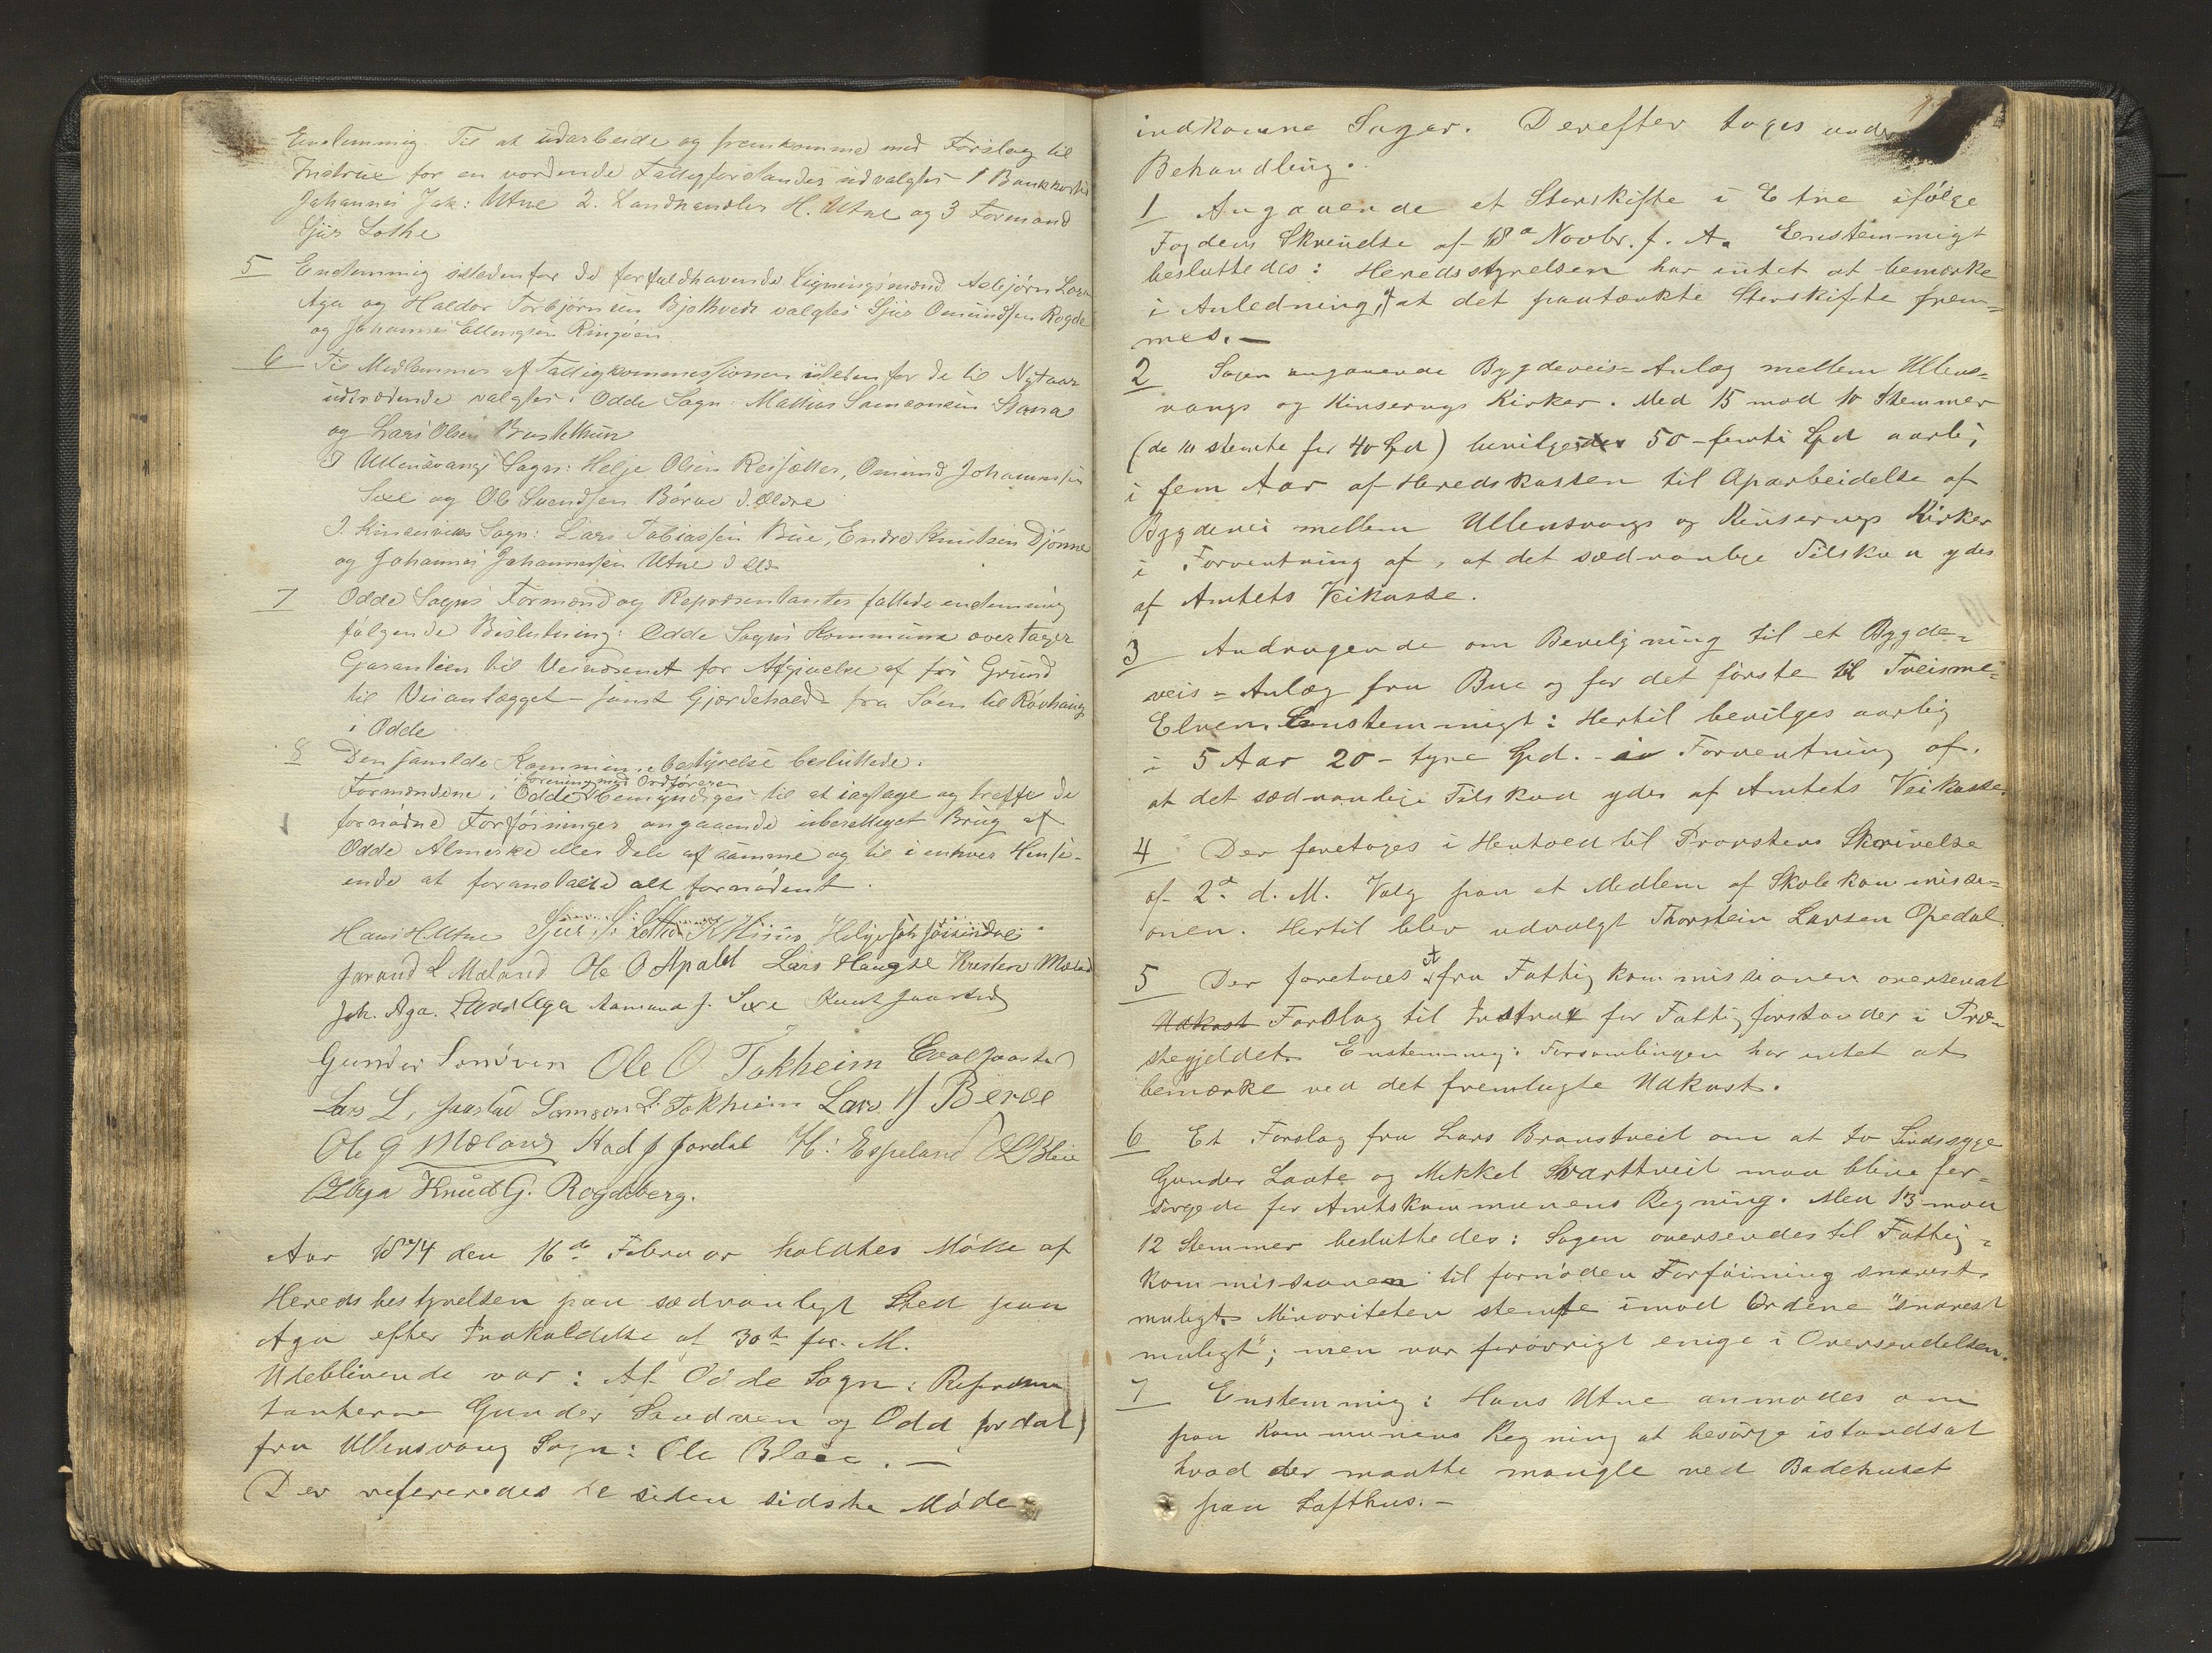 Enstemmig. Til at udarbeide og fremkomme med Forslag til
Instrux for en vordende Fattigforstander udvalgtes 1
Johannes Joh: Utne 2. Landhandler H. Utne og 3 Formand
Sjur Lothe
5 Enstemmig istedenfor de forfaldhavende Ligningsmænd Asbjørn Lars
Aga og Haldor Torbjørnsen Bjotveit valgtes Sjur Omundsen Rogde
og Johannes Ellingsen Ringøen
6 Til Medlemmer af Fattigkommissionen istedenfor de til Nytaar
udtrædende valgtes i Odde Sogn: Mathias Samsonsen Stana
og Lars Olsen Bustethun
I Ullensvangs Sogn: Helje Olsen Reisæter, Omund Johannessen
Sexe og Ole Svendsen Børve d. Ældre
I Kinserviks Sogn: Lars Tobiassen Bue, Endre Knutsen Djønne
og Johannes Johannessen Utne d Æld
7 Odde Sogns Formænd og Repræsentanter fattede enstemmig
følgende Beslutning: Odde Sogns Kommune overtager
Garantien til Veivæsenet for Afgivelse af fri Grund
til Veianlægget samt Gjærdehold fra Søen til
i Odde
8 Den samlede Kommunebestyrelse besluttede.
i forening med Ordføreren
Formændene i Odde bemyndiges til at iagtage og træffe de
fornødne Forføininger angaaende uberettiget Brug af
Odde Almenke eller Dele af samme og til i enhver Hense-
ende at foranstalte alt fornødent.
Hans H Utne Sjur S: Lothe K Huus Helje Joh
Jørund L Mæland Ole O Apald Lars Haugse Kristen Mæland
Joh. Aga. Aga Aamund J. Sexe Knut Jaastad
Gunder Sandven Ole O Tokheim Jaastad
Lars L. Jaastad Samson L. Tokheim Lars H Berve
Ole G Mæland Had J Jordal H: Espeland O L Bleie
O L Aga Knud G. Rogdeberg.
Aar 1874 den 16de Februar holdtes Møde af
Heredsbestyrelsen paa sædvanligt Sted paa
Aga efter Indkaldelse af 30te for. M.
Udeblivende var: Af Odde Sogn: Repræsen
tanterne Gunder Sandven og Odd Jordal
fra Ullensvang Sogn: Ole Bleie. —
Der refereredes de siden sidste Møde
indkomne Sager. Derefter toges under
Behandling.
1 Angaaende et Storskifte i Etne ifølge
Fogdens Skrivelse af 18de Novbr. f. A. Enstemmigt
besluttedes: Heredsstyrelsen har intet at bemærke
i Anledning af at det paatænkte Storskifte frem-
mes. —
2 Sagen angaaende Bygdeveis-Anlæg mellem Ullens-
vangs og Kinservigs Kirker. Med 15 mod 10 Stemmer
(de 10 stemte for 40 Spd) bevilgedes 50 - femti Spd aarlig
i fem Aar af Heredskassen til Oparbeidelse af
Bygdevei mellem Ullensvangs og Kinservigs Kirker
i Forventning af, at det sædvanlige Tilskud ydes
af Amtets Veikasse.
3 Andragende om Bevilgning til et Bygde-
veis-Anlæg fra Bue og for det første til Tveisme-
Elven. Enstemmigt: Hertil bevilges aarlig
i 5 Aar 20 - tyve Spd. i Forventning af,
at det sædvanlige Tilskud ydes af Amtets Veikasse.
4 Der foretoges i Henhold til Provstens Skrivelse
af 2den d. M. Valg paa et Medlem af Skolekommissi-
onen. Hertil blev udvalgt Thorstein Larsen Opedal.
5 Der foretoges et fra Fattigkommissionen oversendt
Udkast Forslag til Instrux for Fattigforstander i Præ-
stegjeldet. Enstemmig: Forsamlingen har intet at
bemærke ved det fremlagte Udkast.
6 Et Forslag fra Lars Braustveit om at to Sindssyge
Gunder Laate og Mikkel Svarttveit maa blive for-
sørgede for Amtskommunens Regning. Med 13 mod
12 Stemmer besluttedes: Sagen oversendes til Fattig-
kommissionen til fornøden Forføining snarest
muligt. Minoriteten stemte imod Ordene "snarest
muligt"; men var forøvrigt enige i Oversendelsen.
7 Enstemmig: Hans Utne anmodes om
paa Kommunens Regning at besørge istandsat
hvad der maatte mangle ved Badehuset
paa Lofthus. —